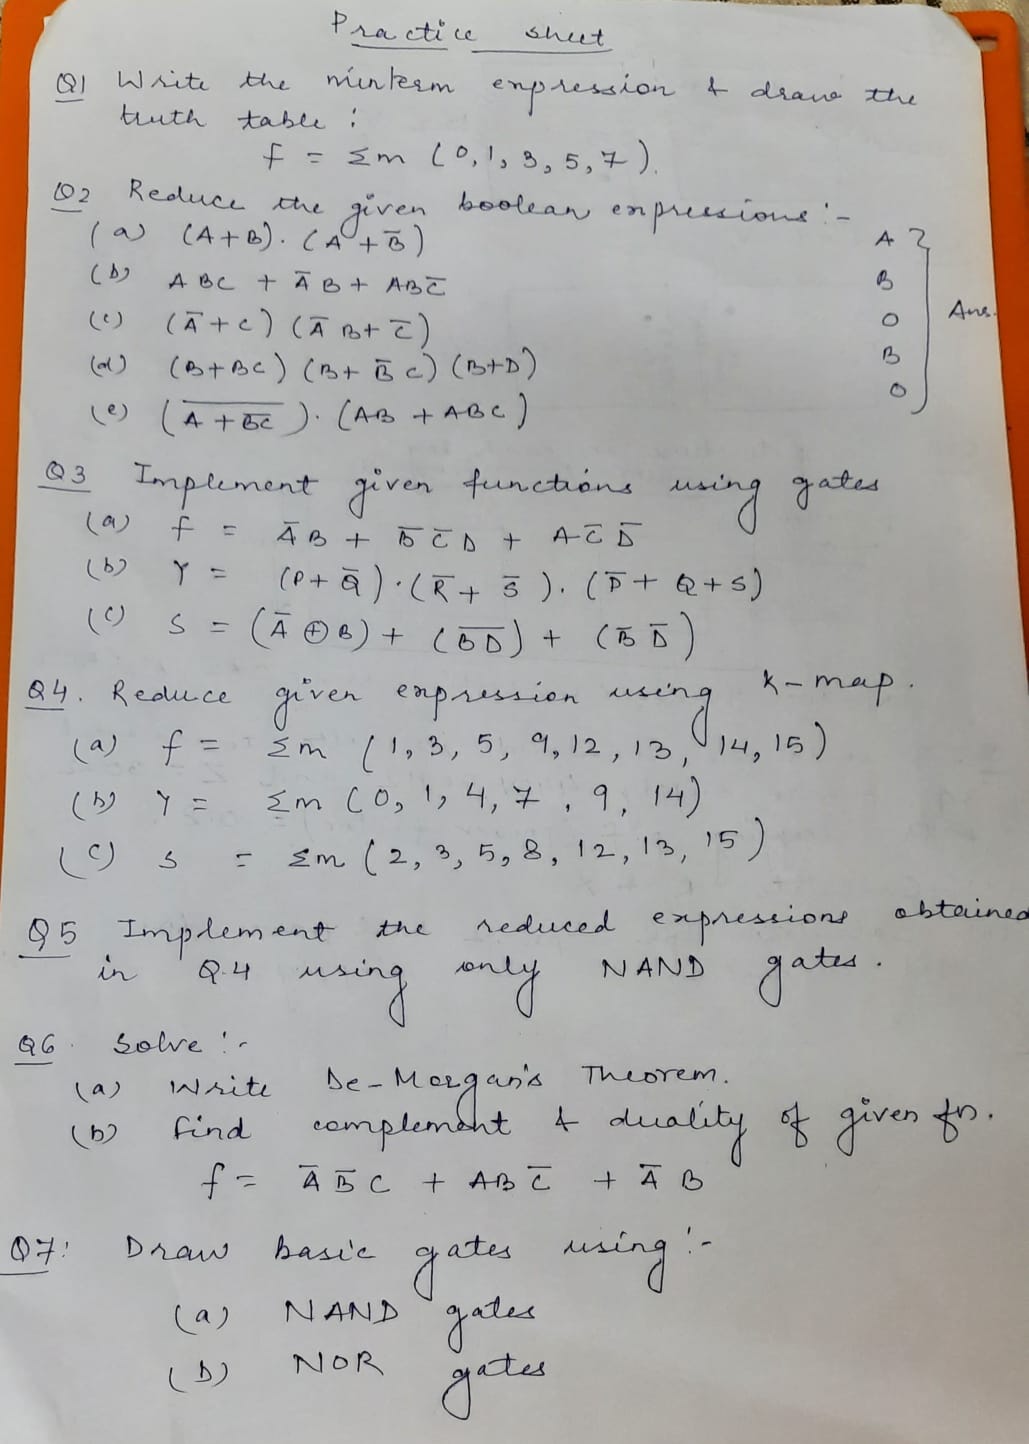 Practice sheet
Q1 Write the minterm expression & draw the
truth table :
f = Σm (0,1,3,5,7).
Q2 Reduce the given boolean expressions :-
(a) (A+B).(A+B̅) A
(b) ABC + A̅B + ABC̅ B
(c) (A̅+C) (A̅B+C̅) 0 Ans.
(d) (B+BC) (B+B̅C) (B+D) B
(e) (A̅ ̅+̅ ̅B̅C̅).(AB + ABC) 0
Q3 Implement given functions using gates
(a) f = A̅B + B̅C̅D + AC̅D̅
(b) Y = (P+Q̅).(R̅+S̅).(P̅+Q+S)
(c) S = (A̅⊕B) + (B̅D̅) + (B̅ D̅)
Q4. Reduce given expression using k-map.
(a) f = Σm (1, 3, 5, 9, 12, 13, 14, 15)
(b) Y = Σm (0, 1, 4, 7, 9, 14)
(c) S = Σm (2, 3, 5, 8, 12, 13, 15)
Q5 Implement the reduced expressions obtained
in Q.4 using only NAND gates.
Q6. Solve :-
(a) Write De-Morgan's Theorem.
(b) find complement & duality of given fn.
f = A̅B̅C + ABC̅ + A̅B
Q7: Draw basic gates using :-
(a) NAND gates
(b) NOR gates